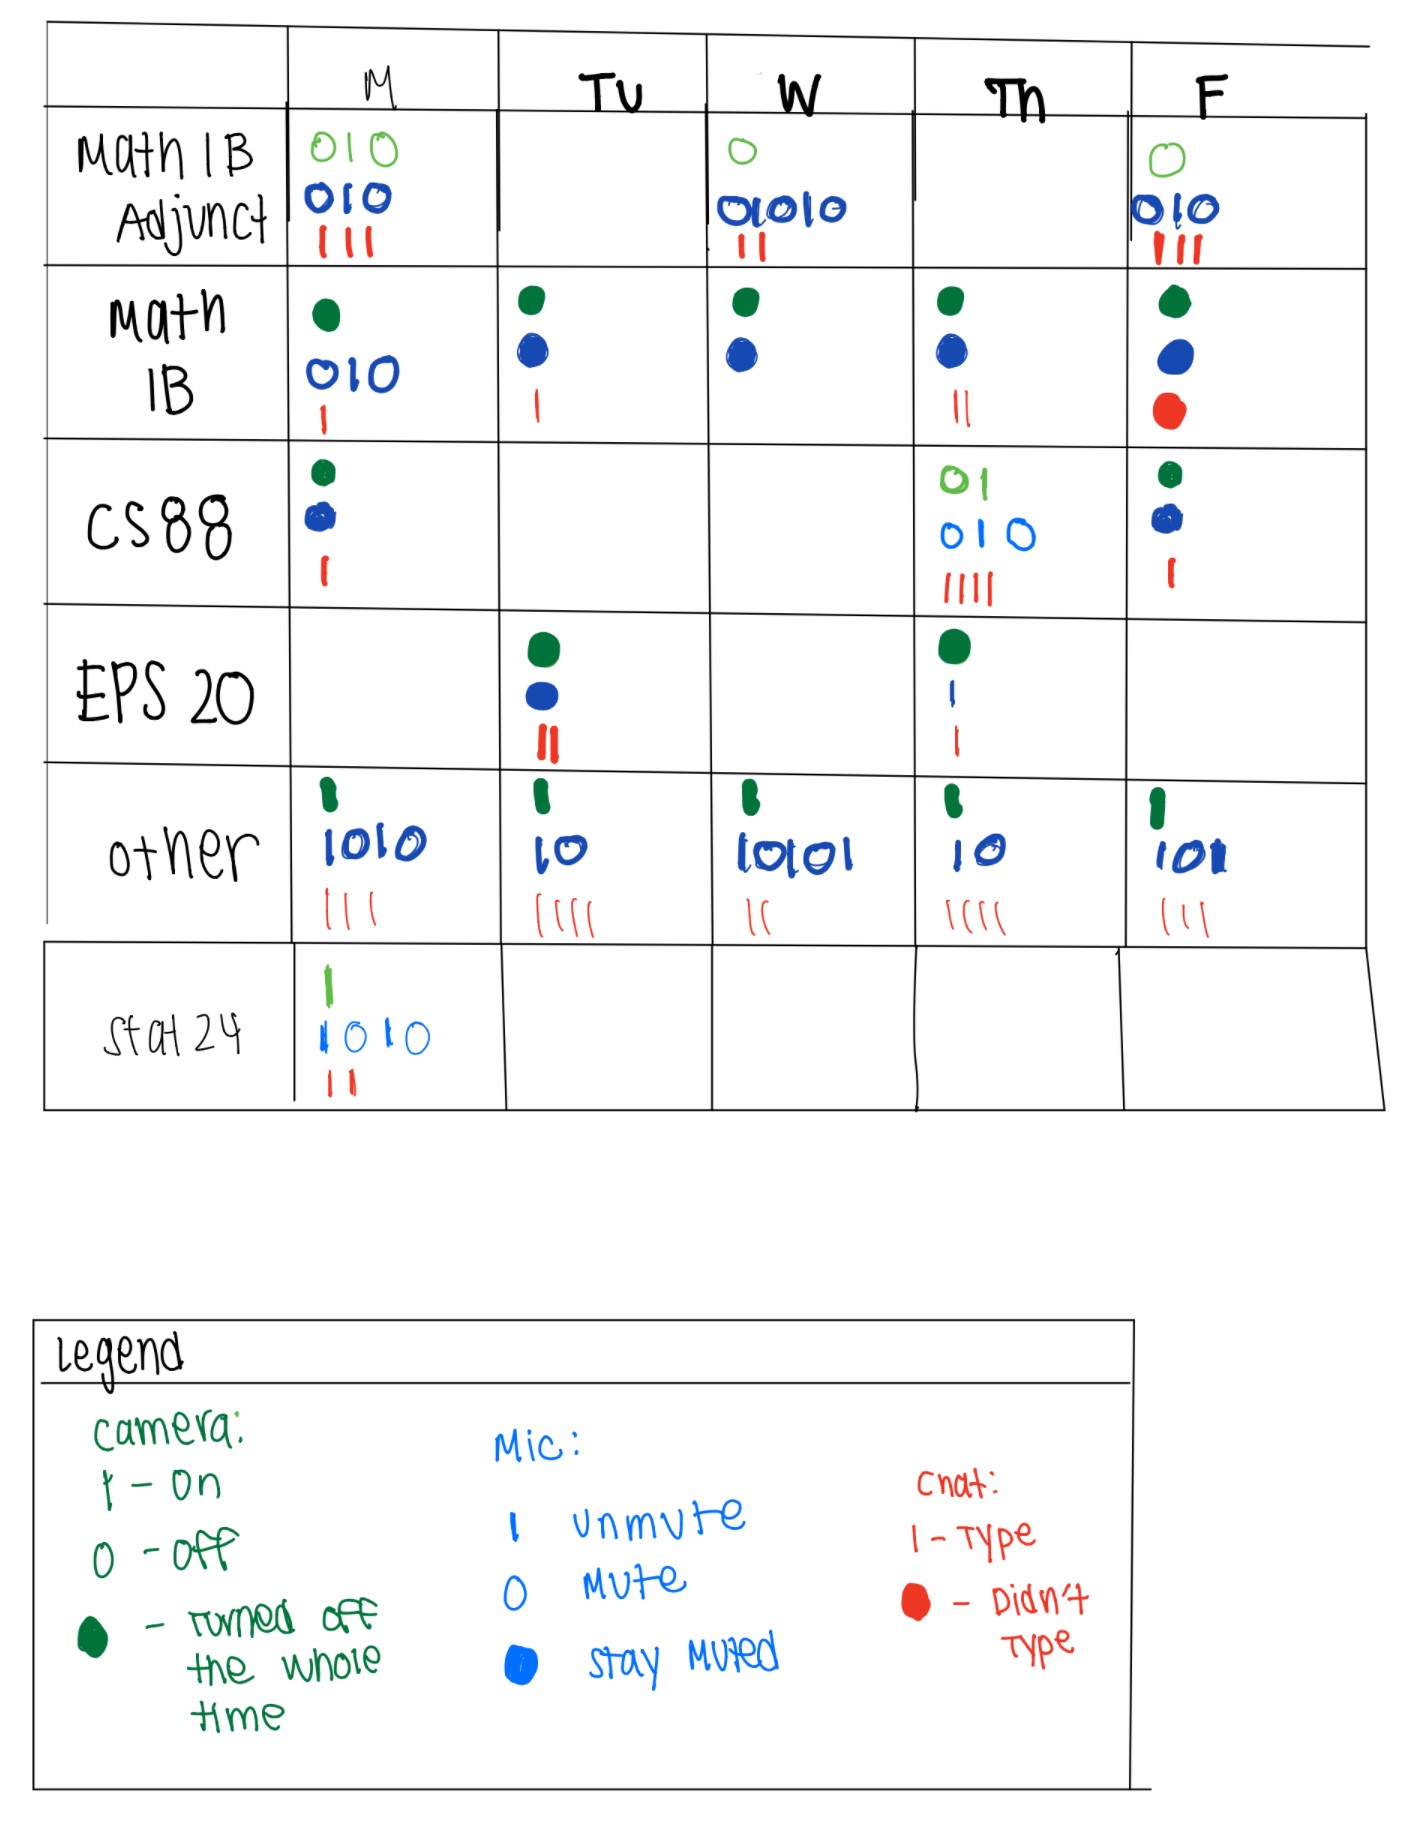 M Tu W Th F
Math 1B Adjunct
010 0 0
010 01010 010
111 11 111
Math 1B
010
1 1 11
CS88
01
010
1 1111 1
EPS 20
1
11 1
other
1 1 1 1 1
1010 10 10101 10 101
111 1111 11 1111 111
Stat 24
1
1010
11
Legend
Camera:
1 - On
0 - Off
- Turned off
the whole
time
Mic:
1 Unmute
0 Mute
Stay Muted
Chat:
1 - Type
- Didn't
Type